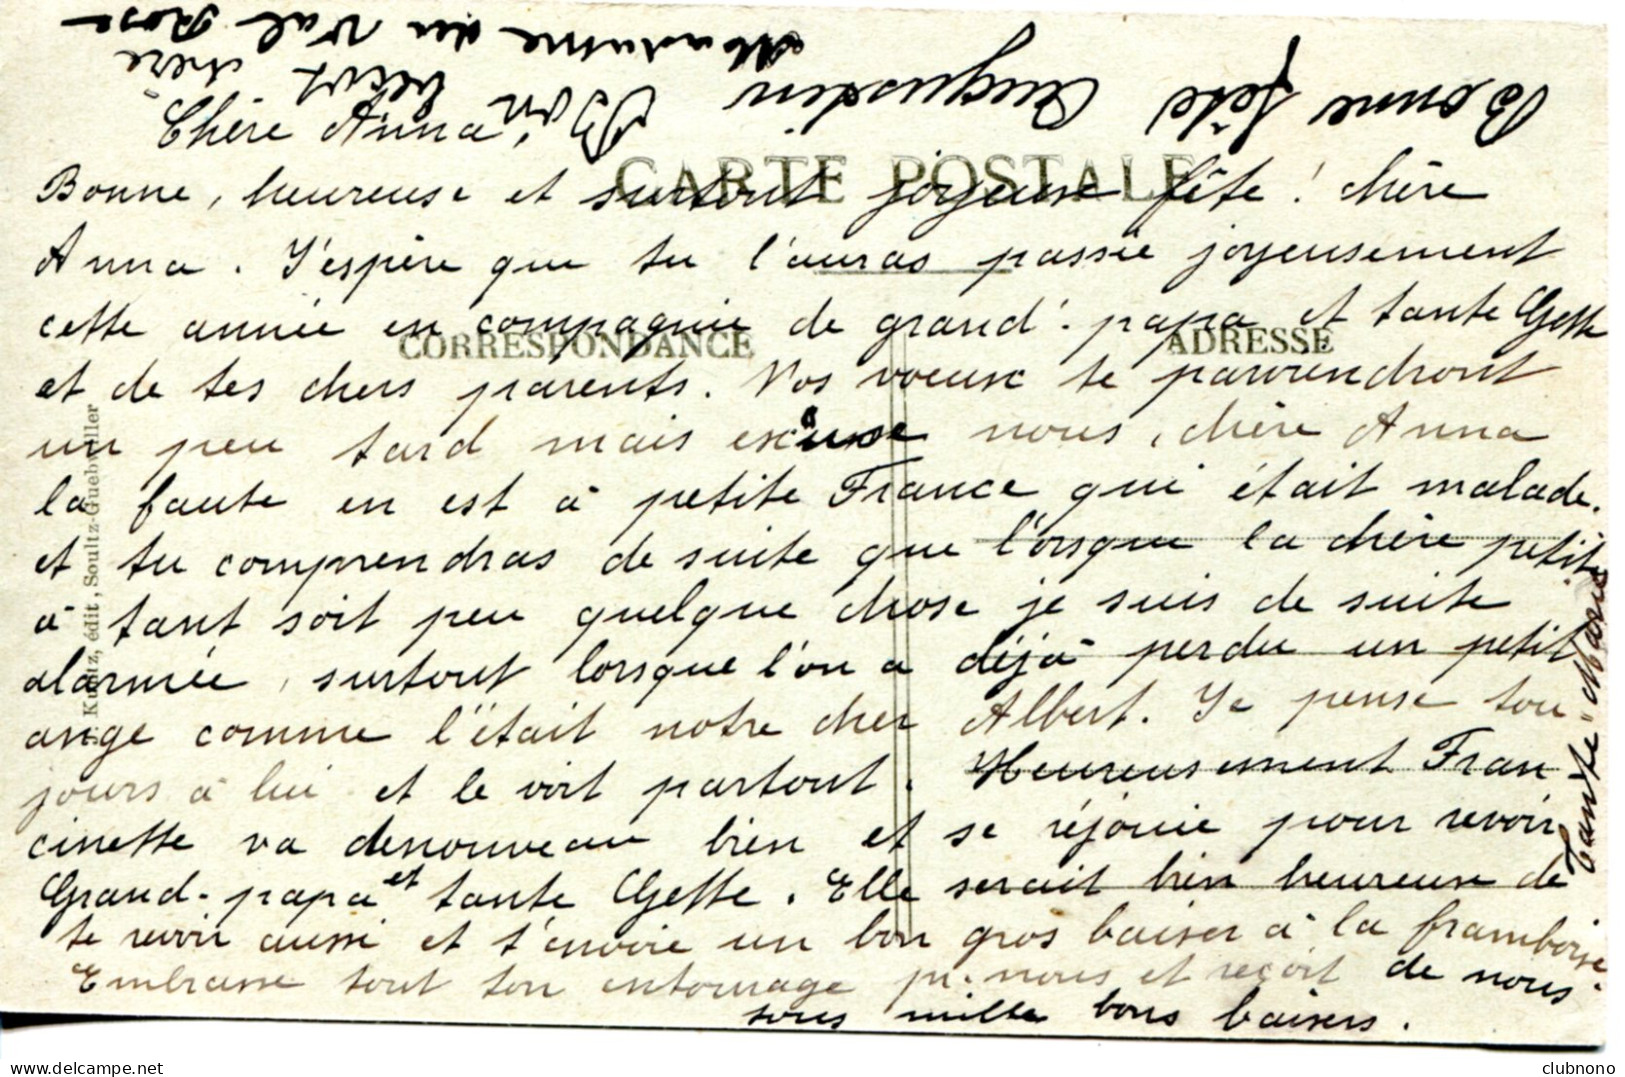 Chère Anna
Bonne, heureuse et surtout joyeuse fête ! chère
Anna. J'espère que tu l'auras passée joyeusement
cette année en compagnie de grand-papa et tante Gette
et de tes chers parents. Nos voeux te parviendront
un peu tard mais excuse nous, chère Anna
la faute en est à petite France qui était malade.
et tu comprendras de suite que l'orsque la chère petite
a tant soit peu quelque chose je suis de suite
alarmée, surtout lorsque l'on a déjà perdu un petit
ange comme l'était notre cher Albert. Je pense tou
jours à lui et le voit partout. Heureusement Fran
cinette va denouveau bien et se réjouie pour revoir
Grand-papa et tante Gette. Elle serait bien heureuse de
te revoir aussi et t'envoie un bon gros baiser à la framboise
Embrasse tout ton entourage pr. nous et reçoit de nous
tous mille bons baisers.
Tante Marie
Bonne fête Augustin
Bon
chère
Madame du Val Rose
CARTE POSTALE
CORRESPONDANCE
ADRESSE
Kuntz, édit, Soultz-Guebwiller
clubnono